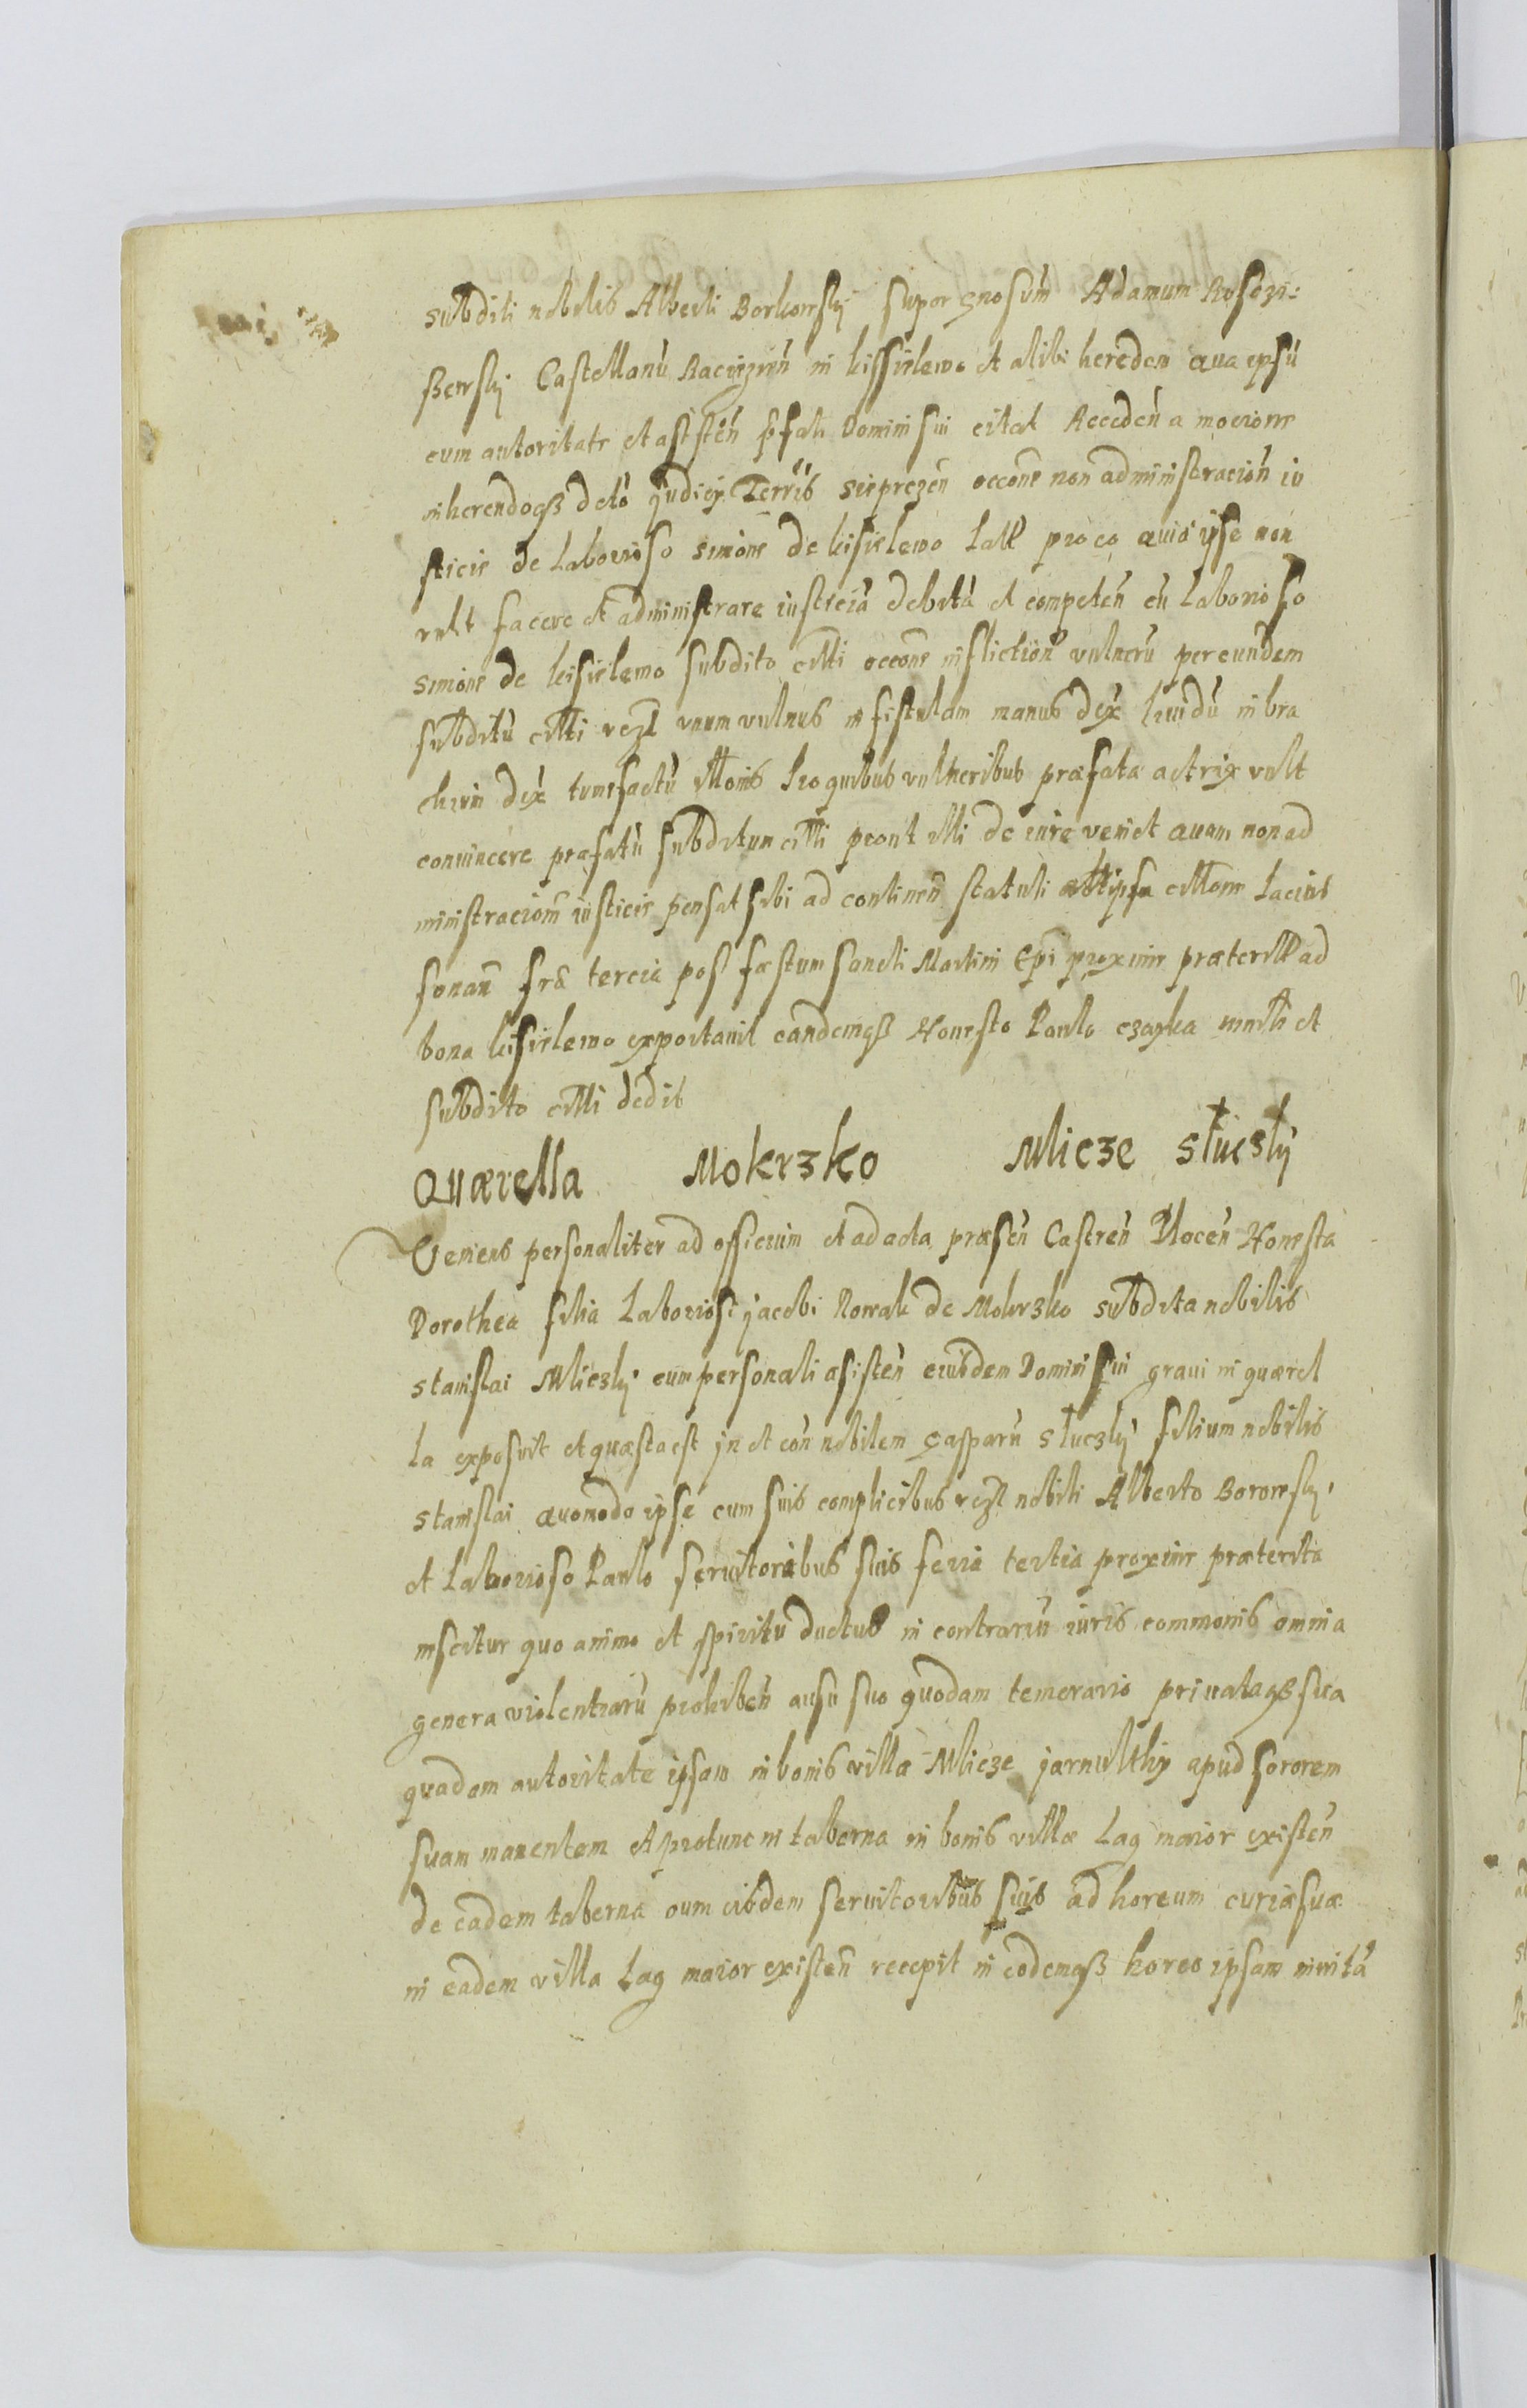 subditi nobilis Alberti Borkowskÿ super gnosum Adamum Rosczi:
szewskÿ Castellanù Raciązen in kissielewo et alibi heredem qua ipsu
cum autoritate et asisten pfati Domini sui citat Receden a mocione
inherendoqз deto judicÿ Terris Sieprezen occone non administracion iu
sticie de Laborioso simone de kisielewo pro eo quia ipse non
vult facere et administrare iusticiä debitä et competen cu Laborioso
simone de kisielewo subdito citti occone infliction vulneru per eundem
subditu citti rezl unum vulnus in fistulam manus dex liuidu in bra
chium dex tumefactu quibus vulneribus præfata actrix vult
conuincere præfatu subditum citti prout illi de iure veniet quam non ad
ministracione iusticie pensat sibi ad continen statuti citone Lacius
sonan fra tercia post fæstum sancti Martini Epi proxime præterill ad
bona kisielewo exportauit eandemqз Honesto Paulo czapka et
subdito citti dedit
Quærella Mokrzko Mlicze słuczkÿ
Veniens personaliter ad officium et ad acta præsen Castren Plocen Honesta
Dorothea filia Laboriosi jacobi Nowak de Mokrzko subdita nobilis
stanislai Mliczkÿ cum personali asisten eiusdem Domini sui graui in quærel
la exposuit et quæsta est in et con nobilem Gasparu słuczkÿ filium nobilis
stanislai quomodo ipse cum suis complicibus rezl nobili Alberto Borowskÿ
et Laborioso Paulo seruitoribus suis feria tertia proxime præterita
nescitur quo animo et spiritu ductus in contrariu iuris commonis omnia
genera violentiaru prohiben ausu suo quodam temerario priuataqз sua
quadam autoritate ipsam in bonis villæ Mlicze jarnulthÿ apud sororem
suam manentem et protunc in taberna in bonis villæ Lag maior existen
de eadem taberna cum eisdem seruitoribus suis ad horeum curiæ suæ
in eadem villa Lag maior existen recepit in eodemqз horeo ipsam inuitä